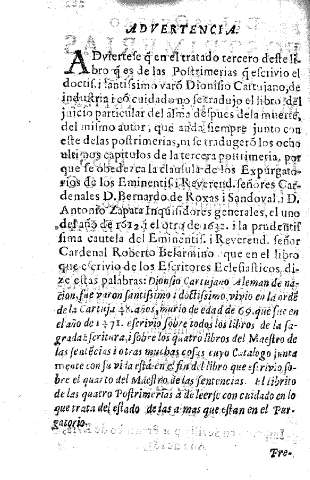 ADVERTENCIA.
ADviertese q̃ en el tratado tercero deste li
bro q̃ es de las Postrimerias q̃ escrivio el
doctis. i santissimo varõ Dionisio Cartujano, de
industria i cõ cuidado no se tradujo el libro del
juicio particular del alma despues de la muerte,
del mismo autor, que anda siempre junto con
este de las postrimerias, ni se tradugerõ los ocho
ultimos capitulos de la tercera postrimeria, por
que se obedezca la clausula de los Expurgato
rios de los Eminentiss. i Reverend. señores Car-
denales D. Bernardo de Roxas i Sandoval, i D.
Antonio Zapata Inquisidores generales, el uno
del año de 1612. i el otro de 1632. i la prudentis
sima cautela del Eminentis. i Reverend. señor
Cardenal Roberto Belarmino que en el libro
que escrivio de los Escritores Eclesiasticos, di-
ze estas palabras: Dionisio Cartujano Aleman de na-
cion, fue varon santissimo i doctissimo, vivio en la ordẽ
de la Cartuja 48. años, murio de edad de 69. que fue en
el año de 1471. escrivio sobre todos los libros de la sa-
grada Escritura, i sobre los quatro libros del Maestro de
las sentẽcias i otras muchas cosas cuyo Catalogo junta
mente con su vida està en el fin del libro que escrivio so-
bre el quarto del Maestro de las sentencias. El librito
de las quatro Postrimerias à de leerse con cuidado en lo
que trata del estado de las almas que estan en el Pur-
gatorio.
Pre-